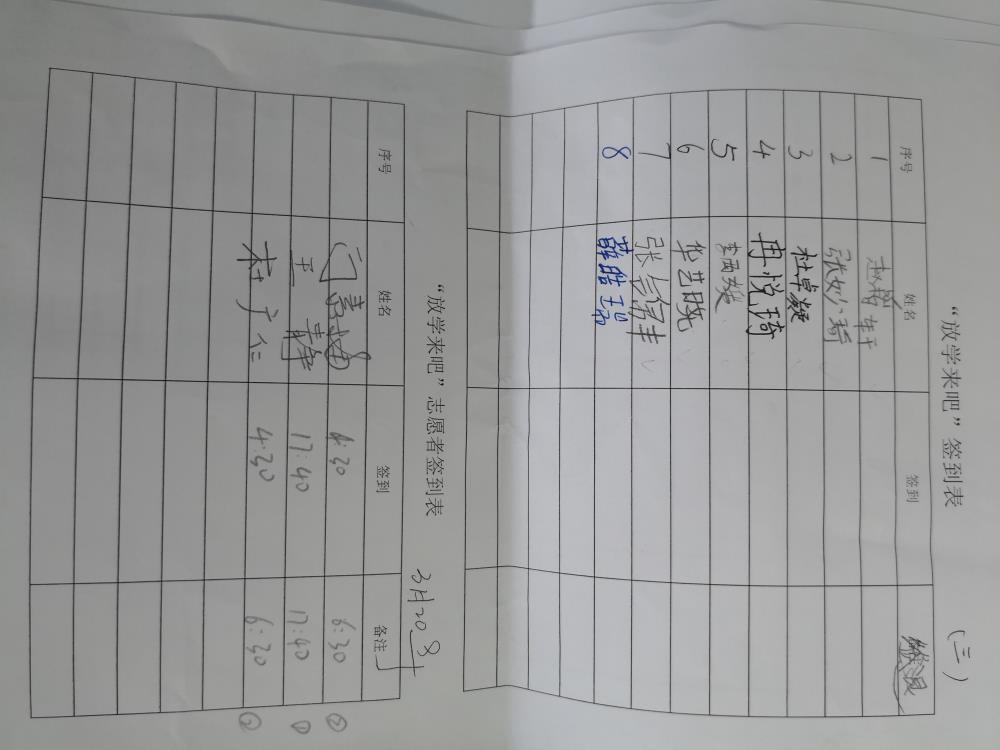 “放学来吧”签到表 （三）
序号 姓名 签到
1
2 张妙琦
3 杜卓凝
4 冉悦琦
5 李雨媛
6 华艺晓
7 张
8 薛皓瑞
“放学来吧”志愿者签到表 3月20日
序号 姓名 签到 备注
4:30 6:30 ②
王静 17:40 17:40 ①
广仁 4:30 6:30 ②